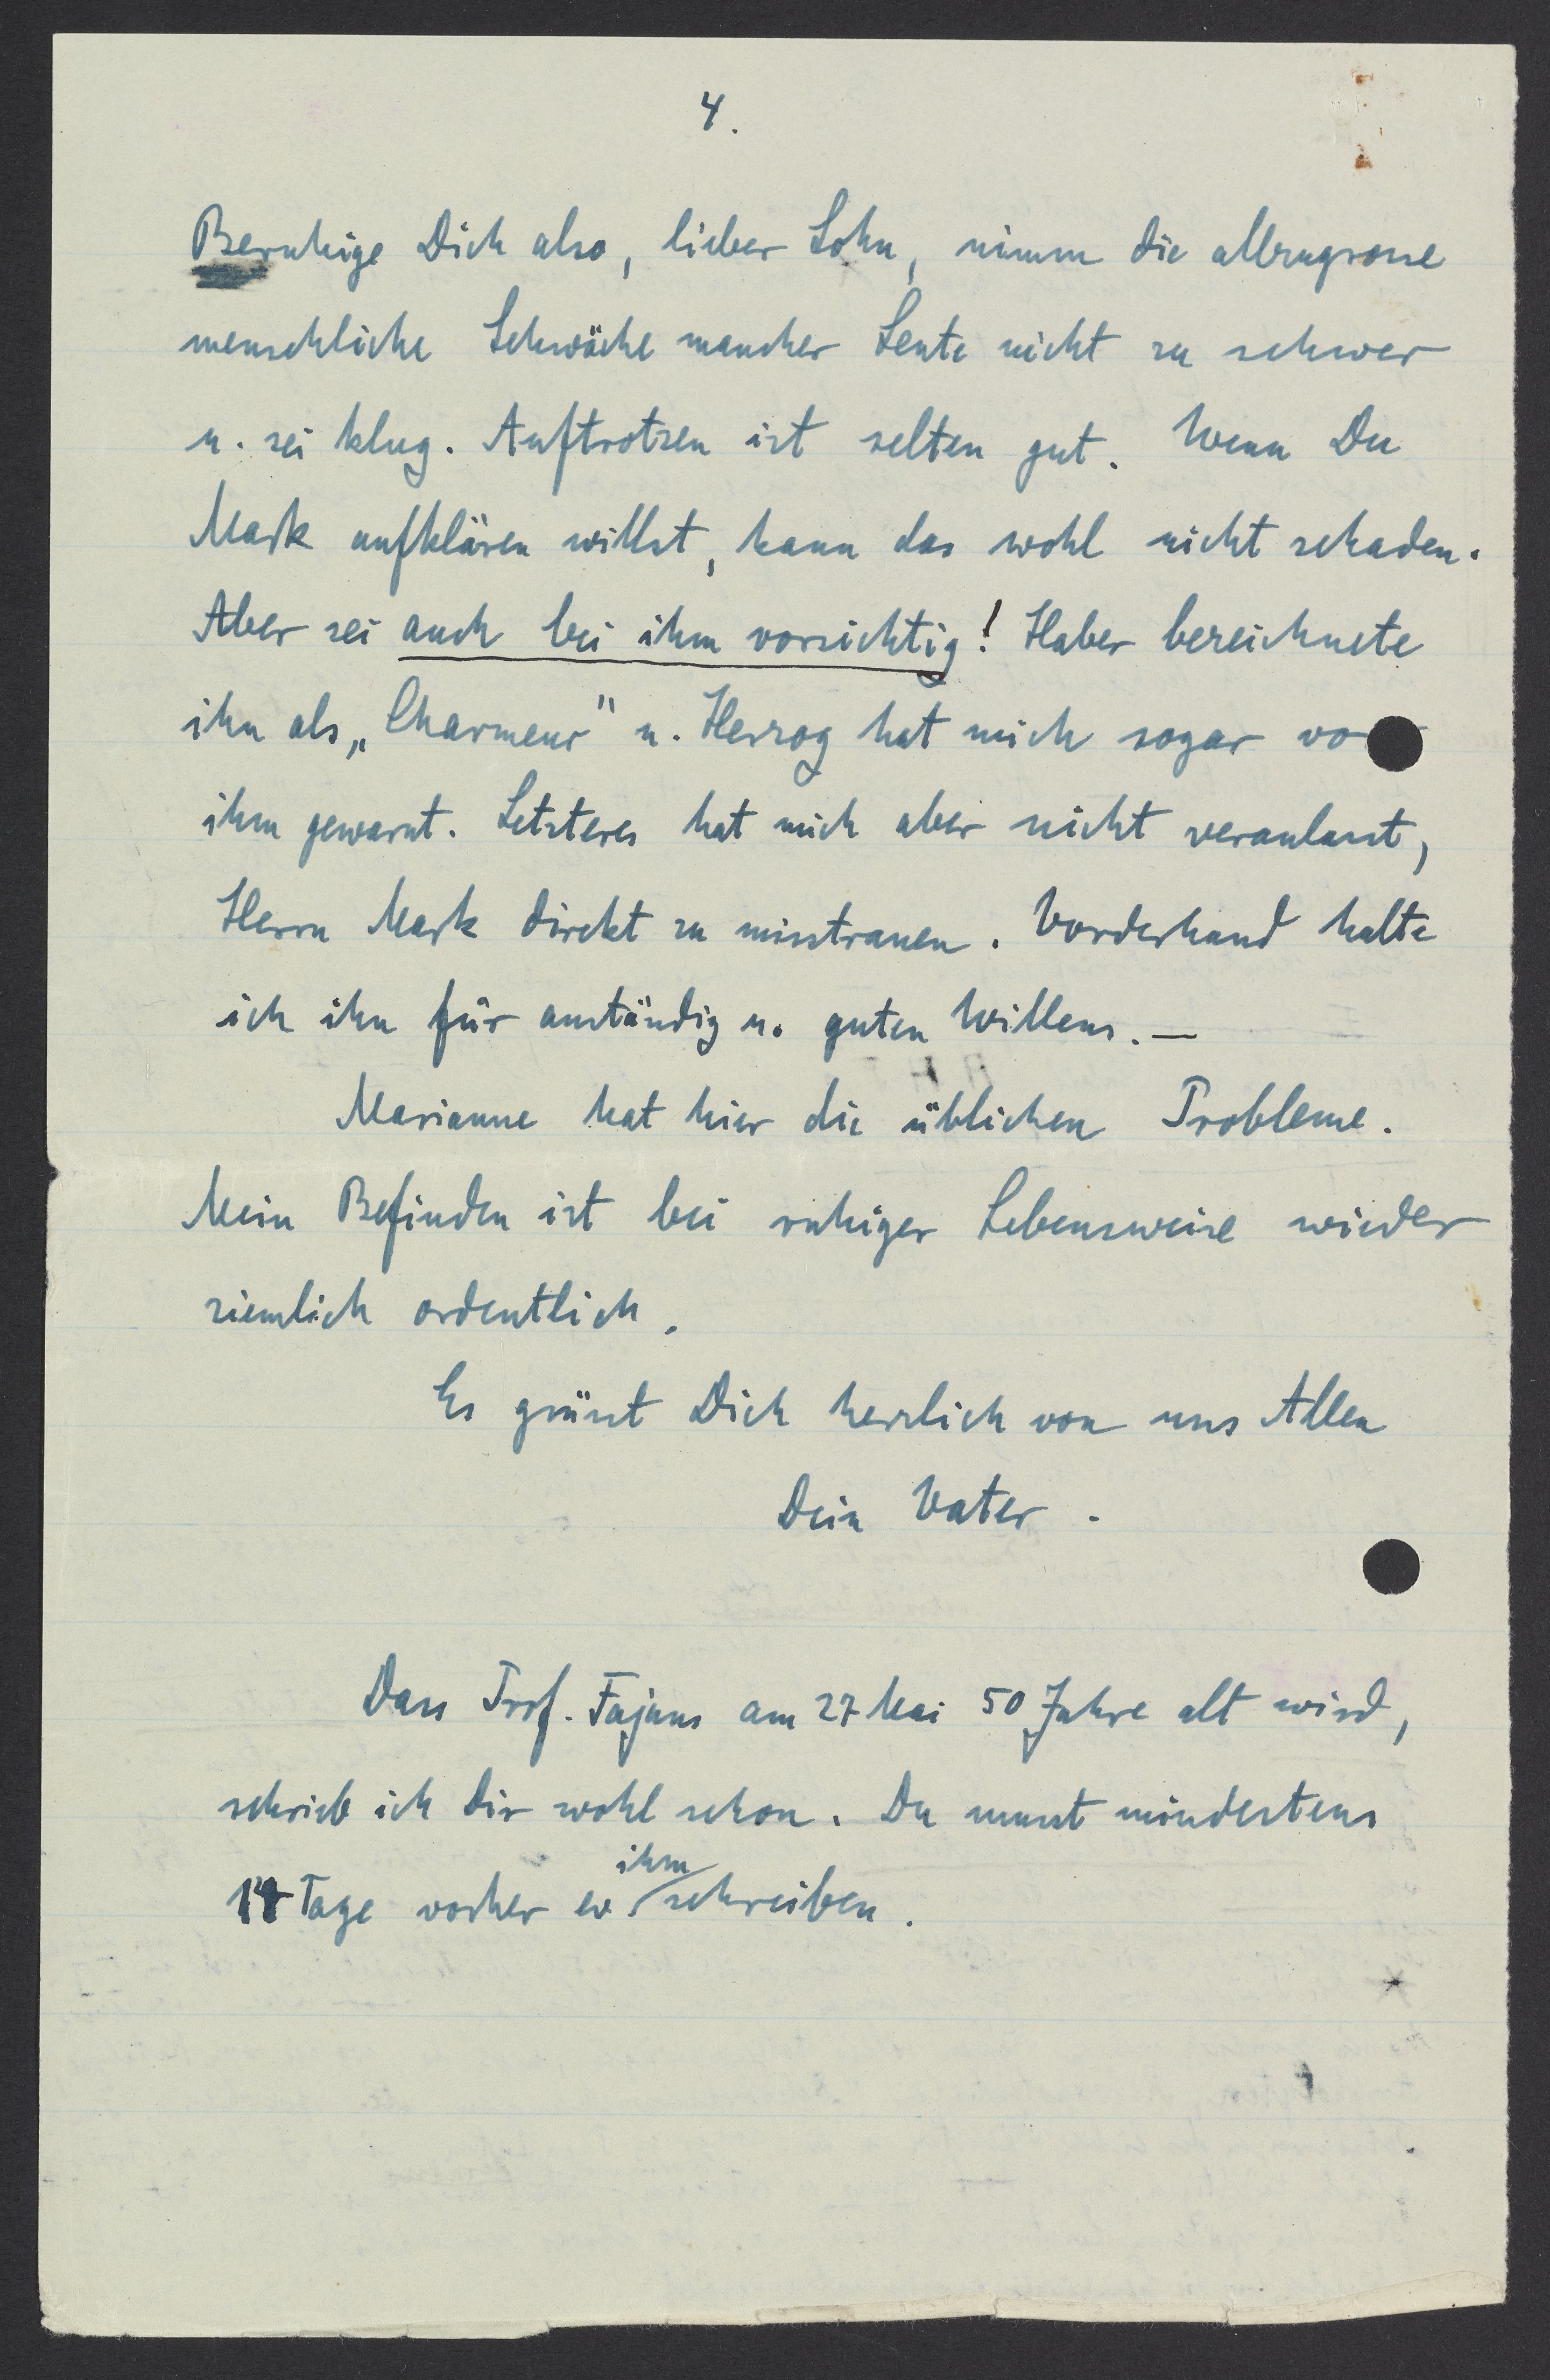 4.
Beruhige Dich also, lieber Sohn, nimm die allzugrosse
menschliche Schwäche mancher Leute nicht zu schwer
u. sei klug. Auftrotzen ist selten gut. Wenn Du
Mark aufklären willst, kann das wohl nicht schaden.
Aber sei auch bei ihm vorsichtig! Haber bezeichnete
ihn als „Charmeur" u. Herzog hat mich sogar vo
ihm gewarnt. Letzteres hat mich aber nicht veranlasst,
Herrn Mark direkt zu misstrauen. Vorderhand halte
ich ihn für anständig u. guten Willens. —
Marianne hat hier die üblichen Probleme.
Mein Befinden ist bei ruhiger Lebensweise wieder
ziemlich ordentlich.
Es grüsst Dich herzlich von uns Allen
Dein Vater.
Dass Prof. Fajans am 27 Mai 50 Jahre alt wird,
schrieb ich Dir wohl schon. Du musst mindestens
14 Tage vorher ev. ihm schreiben.